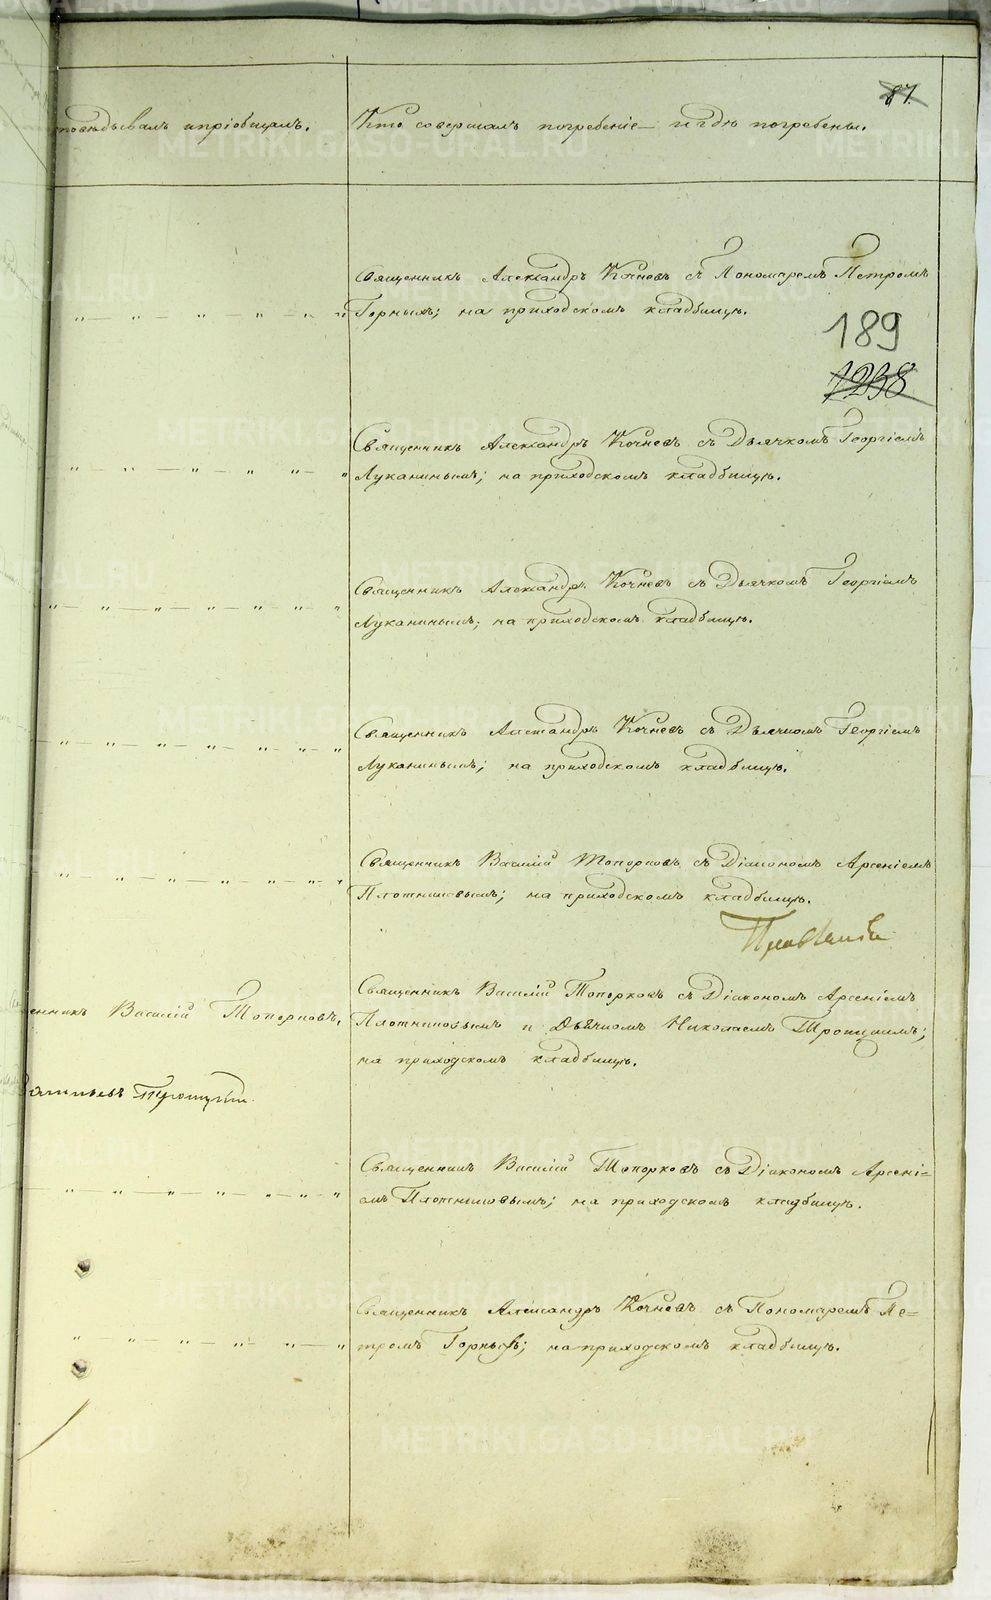 87
повѣдывалъ и пріобщалъ.
Кто совершалъ погребеніе и гдѣ погребены.
Священникъ Александръ Кочневъ съ Пономаремъ Петромъ
Горныхъ; на приходскомъ кладбищѣ.
189
1238
Священникъ Александръ Кочневъ съ Дьячкомъ Георгіемъ
Луканинымъ; на приходскомъ кладбищѣ.
Священникъ Александръ Кочневъ съ Дьячкомъ Георгіемъ
Луканинымъ; на приходскомъ кладбищѣ.
Священникъ Александръ Кочневъ съ Дьячкомъ Георгіемъ
Луканинымъ; на приходскомъ кладбищѣ.
Священникъ Василій Топорковъ съ Діакономъ Арсеніемъ
Плотниковымъ; на приходскомъ кладбищѣ.
енникъ Василій Топорковъ.
Священникъ Василій Топорковъ съ Діакономъ Арсеніемъ
Плотниковымъ и Дьячкомъ Николаемъ Троицкимъ;
на приходскомъ кладбищѣ.
Священникъ Василій Топорковъ съ Діакономъ Арсені-
емъ Плотниковымъ; на приходскомъ кладбищѣ.
Священникъ Александръ Кочневъ съ Пономаремъ Пе-
тромъ Горныхъ; на приходскомъ кладбищѣ.
METRIKI.GASO-URAL.RU